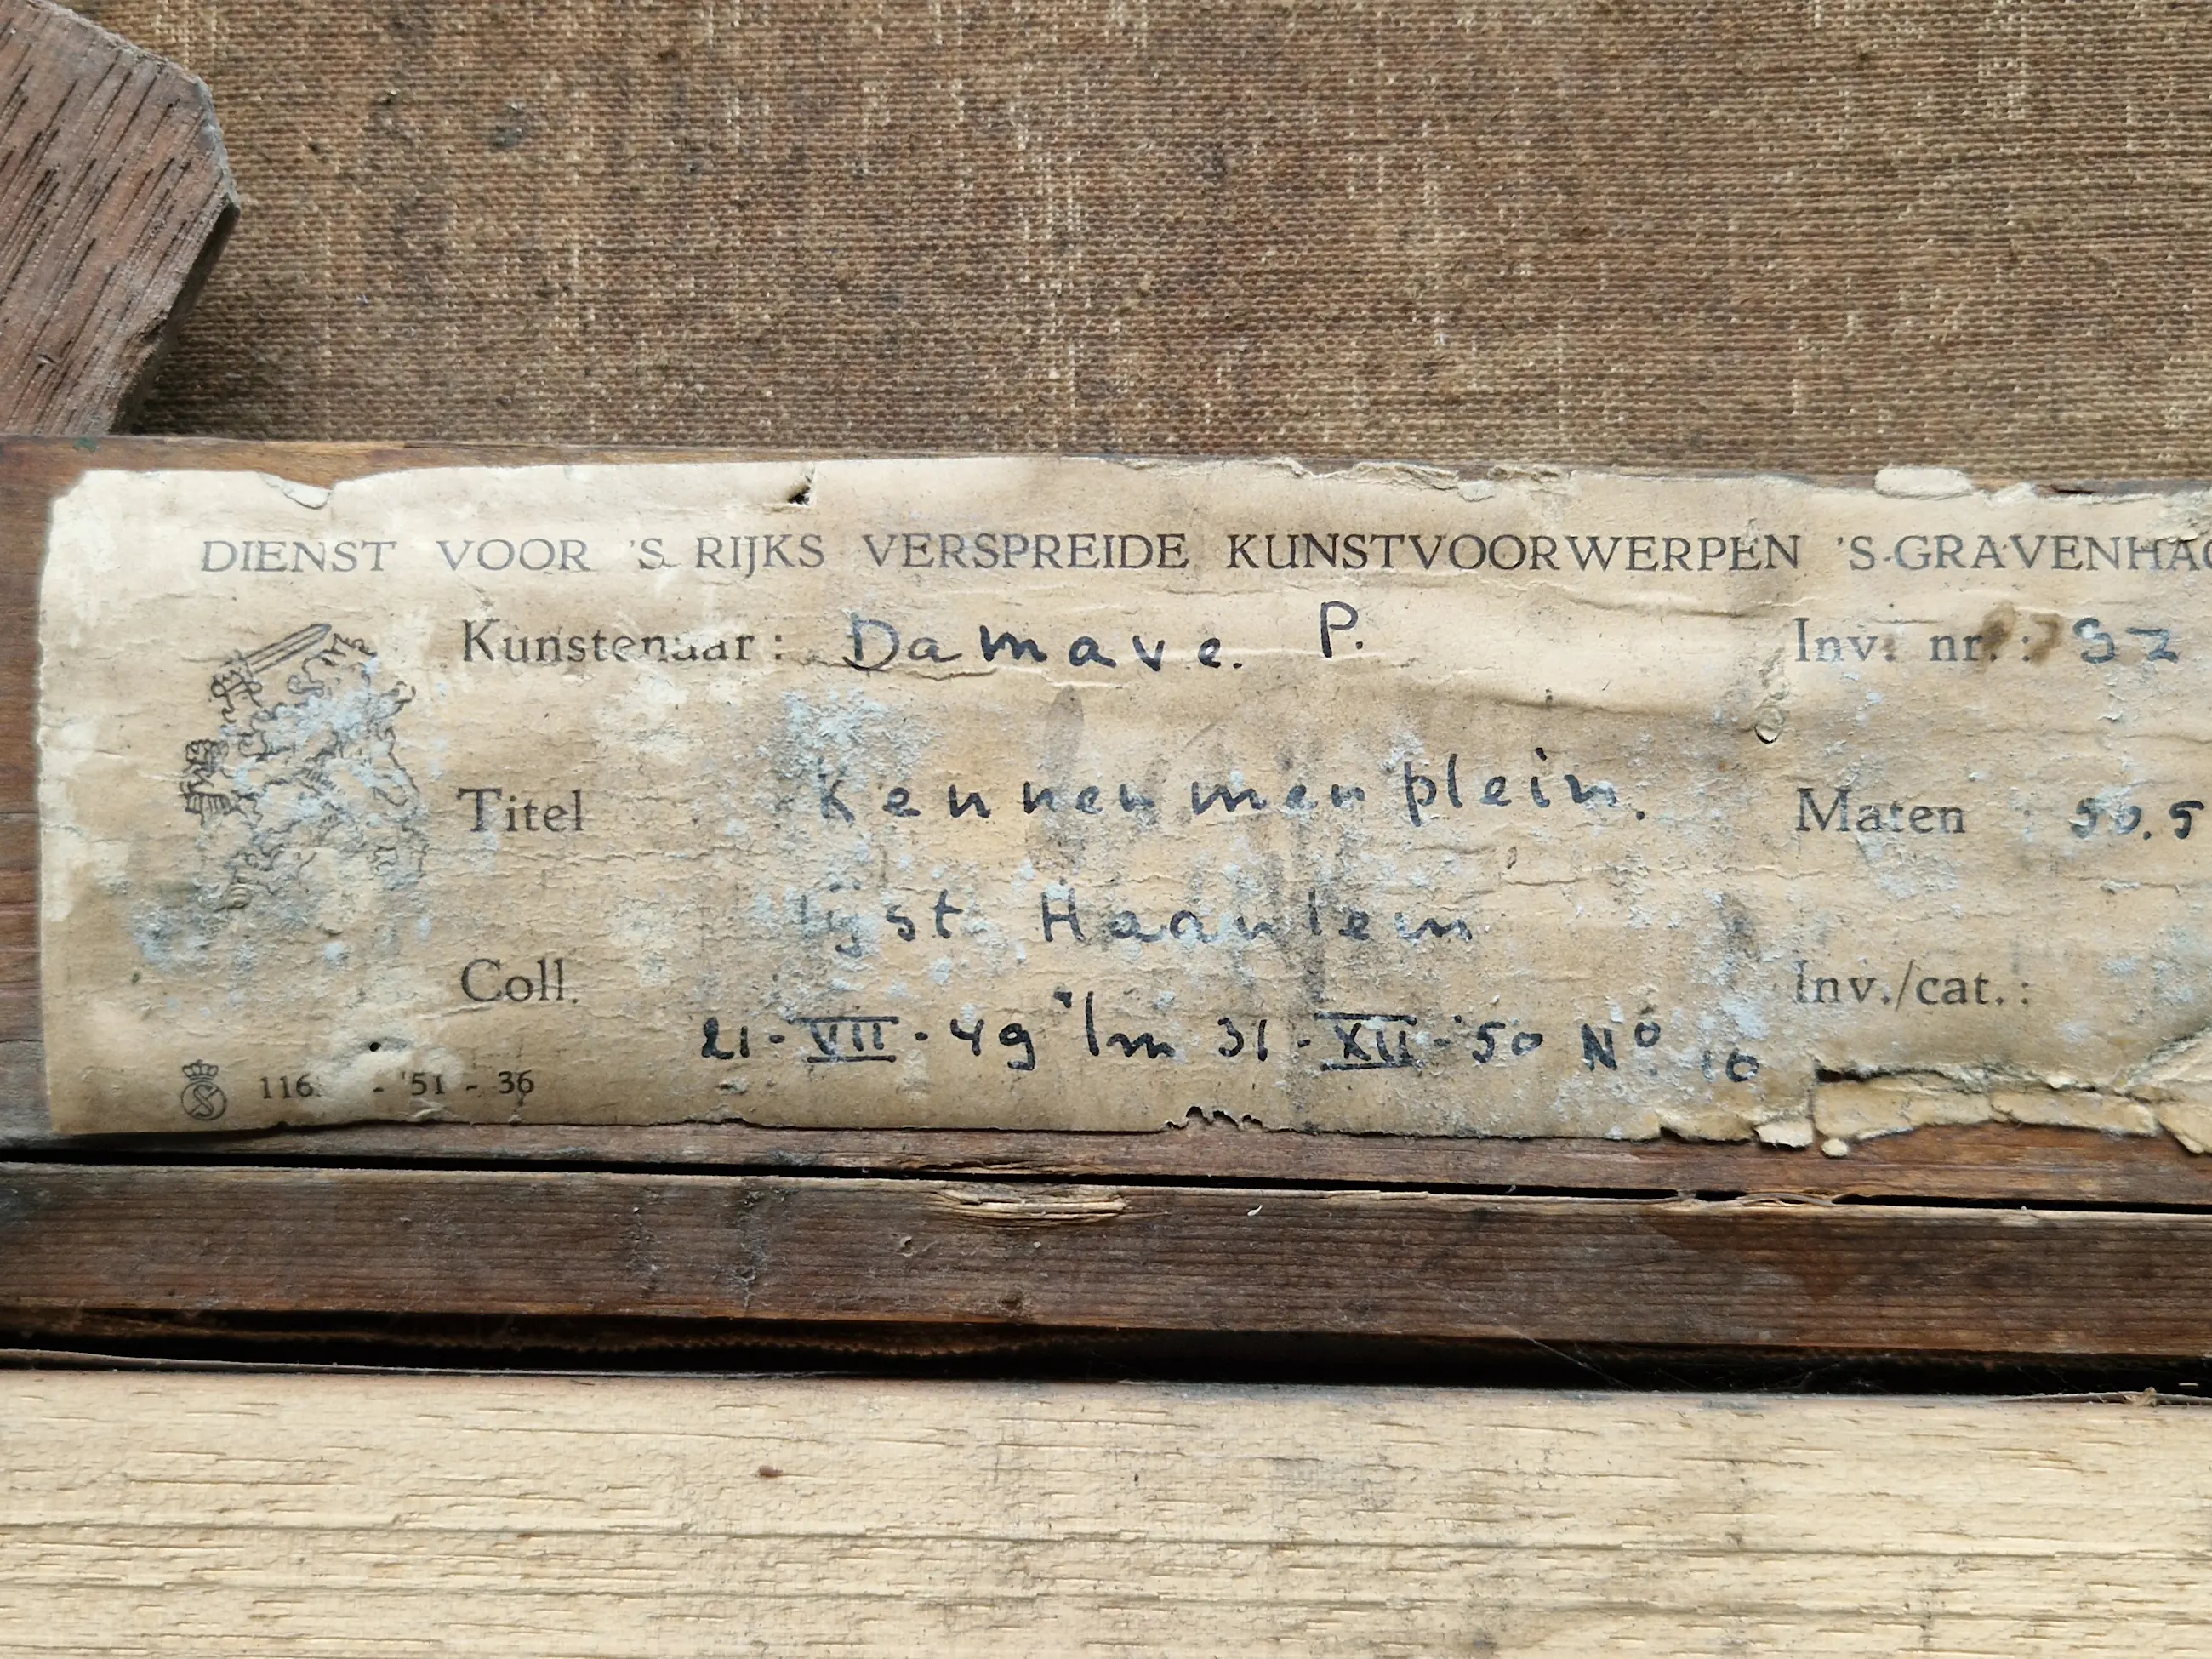 DIENST VOOR 'S RIJKS VERSPREIDE KUNSTVOORWERPEN 'S-GRAVENHAG
Kunstenaar: Damave. P. Inv. nr.: S2
Titel Kennermerplein. Maten : 50.5
lijst Haarlem
Coll. Inv./cat.:
21-VII-49 t/m 31-XII-'50 No. 10
116 - '51 - 36